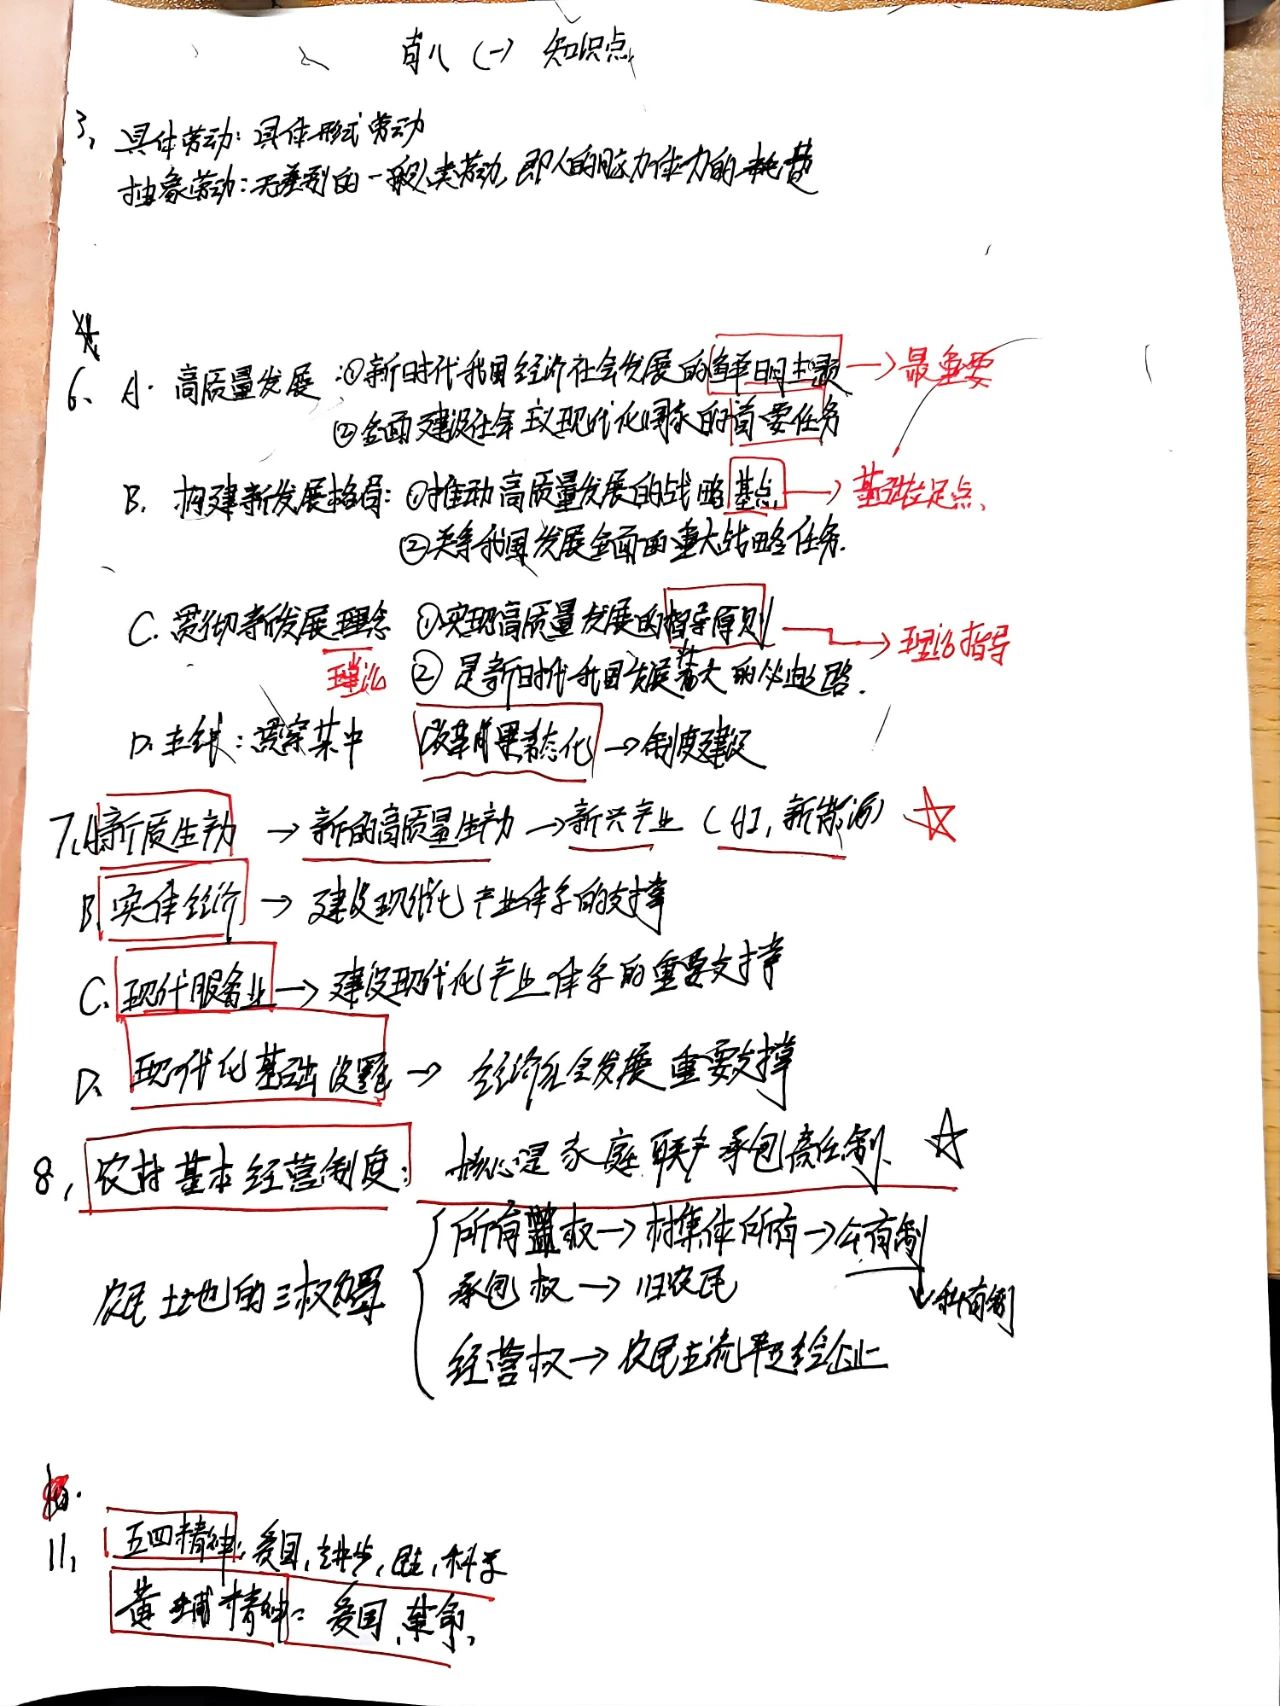 肖八 (一) 知识点
3, 具体劳动: 具体形式劳动
抽象劳动: 无差别的一般人类劳动, 即人的脑力体力的耗费
6、A. 高质量发展: ①新时代我国经济社会发展的鲜明主题 → 最重要
②全面建设社会主义现代化国家的首要任务
B. 构建新发展格局: ①推动高质量发展的战略基点 → 基础立足点、
②关系我国发展全面的重大战略任务.
C. 贯彻新发展理念 ①实现高质量发展的指导原则 → 理论指导
理论 ② 是新时代我国发展壮大的必由之路.
D. 主线: 贯穿其中 改革成果常态化 → 制度建设
7, A新质生产力 → 新的高质量生产力 → 新兴产业 (AI, 新能源)
B. 实体经济 → 建设现代化产业体系的支撑
C. 现代服务业 → 建设现代化产业体系的重要支撑
D. 现代化基础设施 → 经济社会发展重要支撑
8, 农村基本经营制度: 核心是家庭联产承包责任制.
所有权 → 村集体所有 → 公有制
农民土地的三权分置 承包权 → 旧农民 → 私有制
经营权 → 农民主流转给企业
11, 五四精神: 爱国, 进步, 民主, 科学
黄埔精神: 爱国、革命,